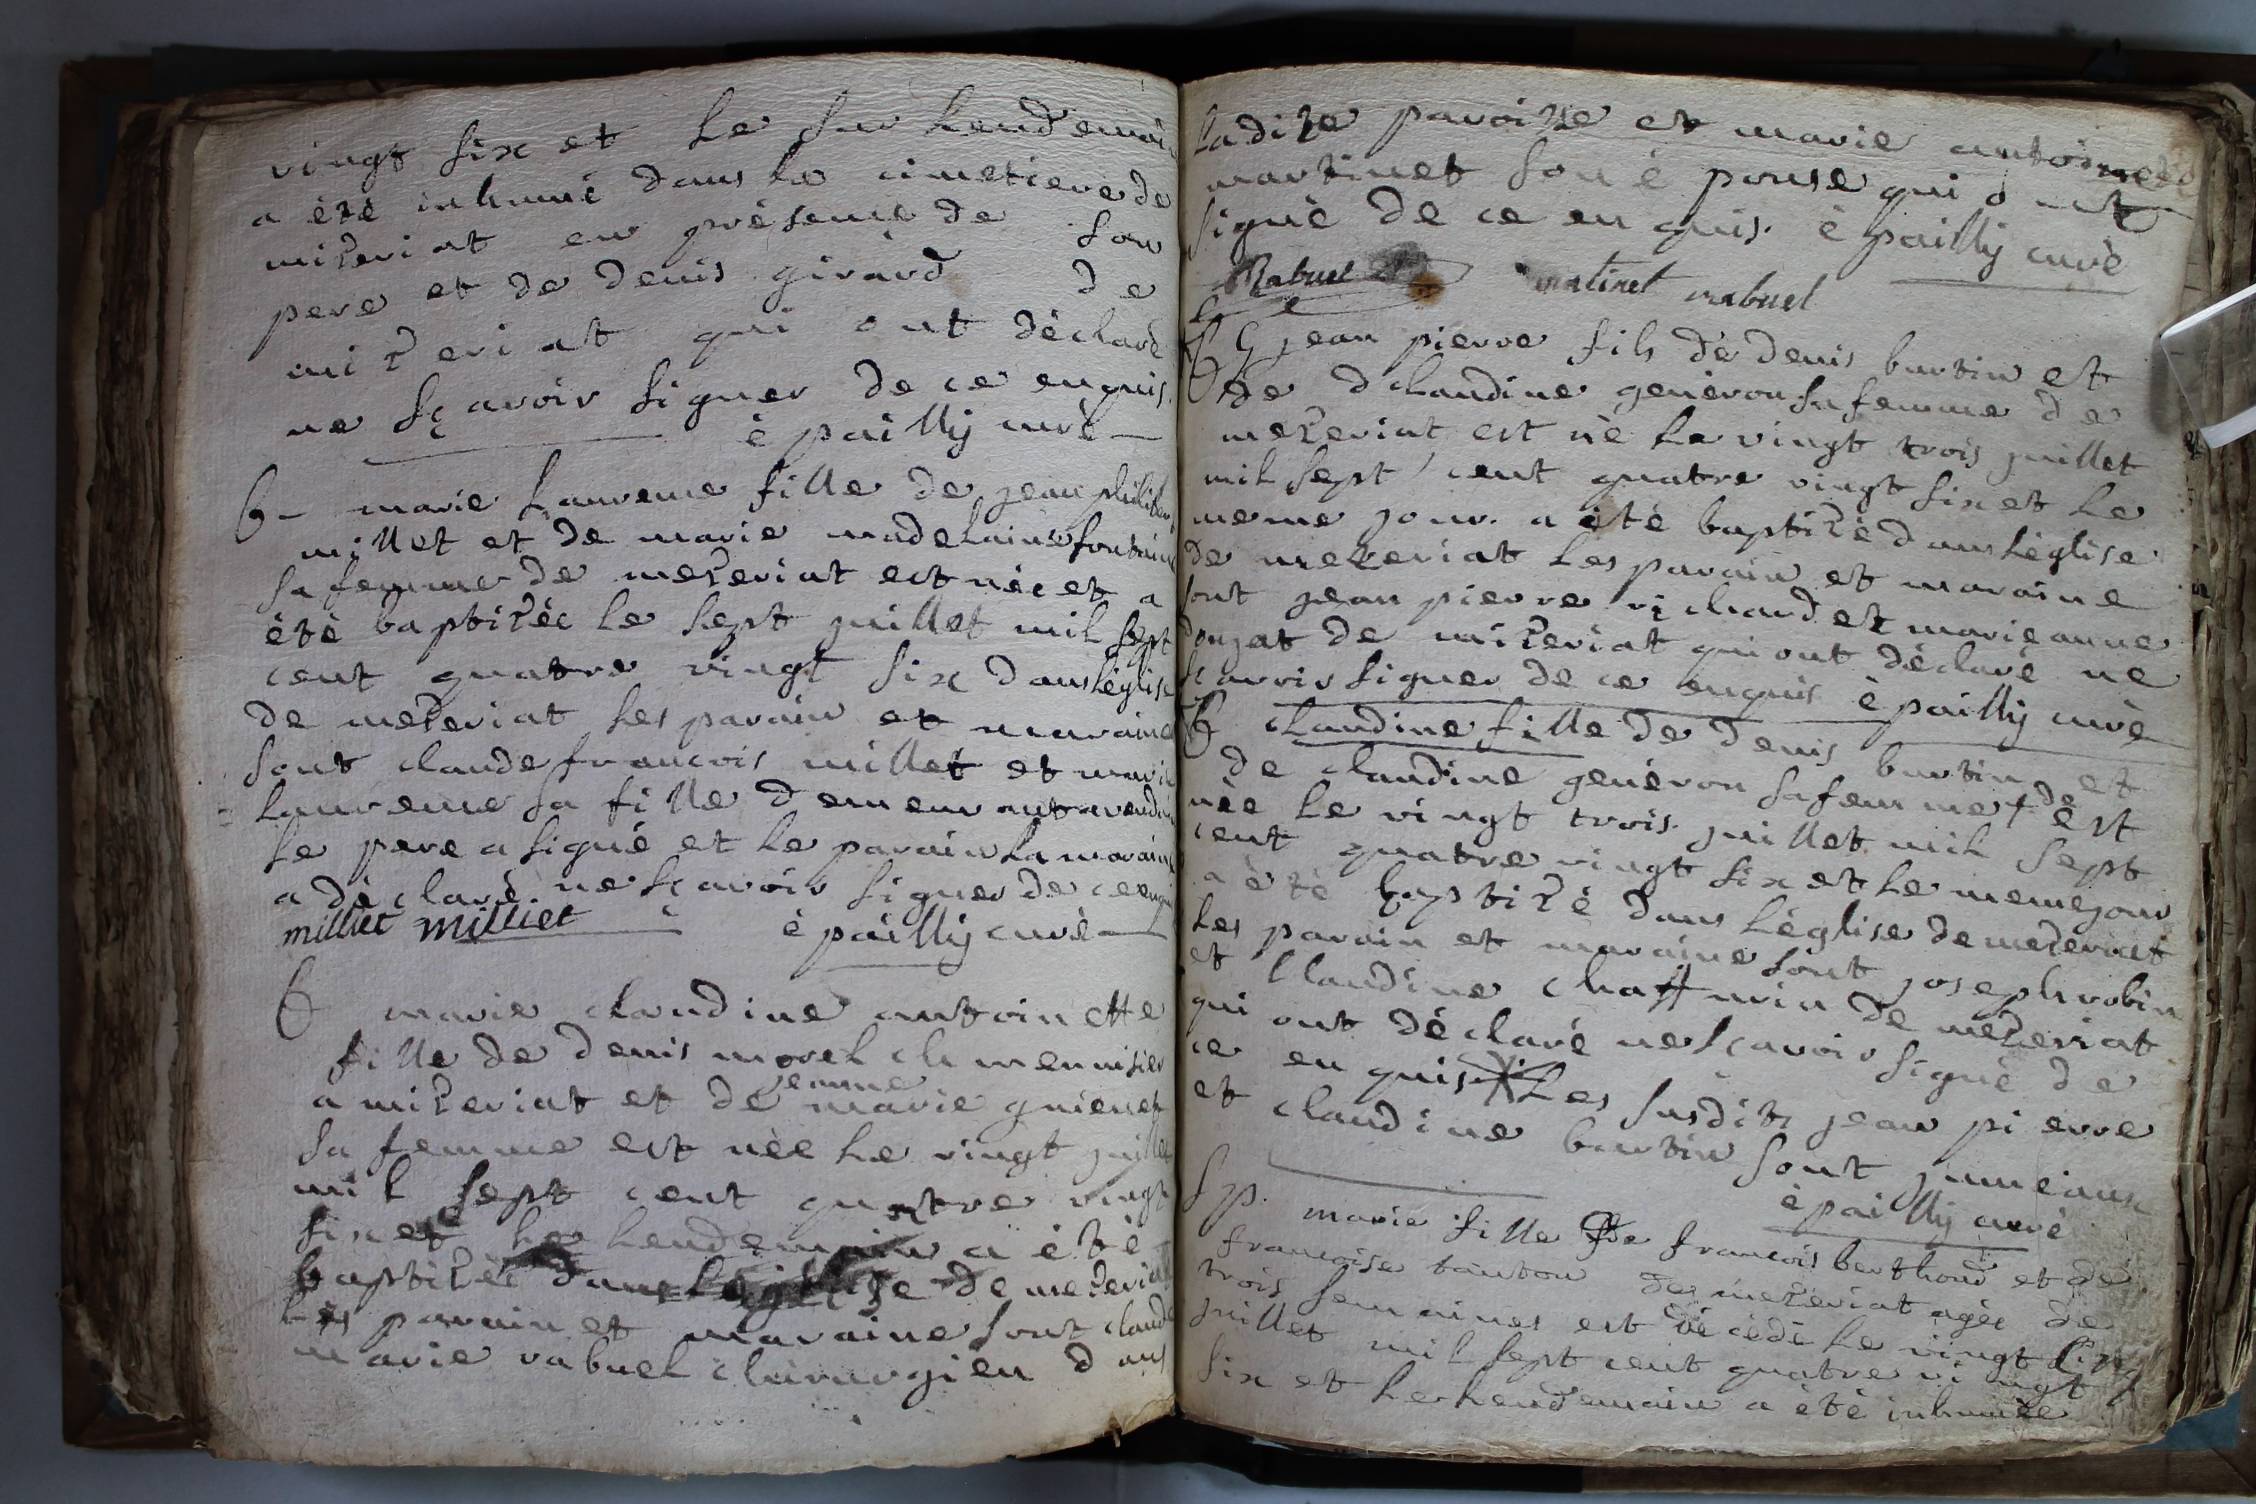 vingt six et le sur lendemain
a été inhumé dans le cimetiere de
mizeriat en présence de son
pere et de denis girard de
mizeriat qui ont déclaré
ne sçavoir signer de ce enquis.
épailly curé
B marie laurence fille de jean philibert
millet et de marie madelaine fontaine
sa femme de mezeriat est née et a
été baptizée le sept juillet mil sept
cent quatre vingt six dans léglise
de mezeriat les parain et maraine
sont claude francois millet et marie
laurence sa fille demeurant a
le pere a signé et le parain la maraine
a déclaré ne sçavoir signer de ce enquis
milliet milliet épailly curé
B marie claudine antoinette
fille de denis morel menuisier
femme
a mizeriat et de marie guienet
sa femme est née le vingt juillet
mil sept cent quatre vingt
six et le lendemain a été
baptizée dans léglise de mezeriat
les parain et maraine sont claude
marie rabuel chirurgien dans
ladize paroisse et marie antoinette
martinet son épouse qui ont
signé de ce enquis. épailly curé
Rabuel matinet rabuel
B G jean pierre fils de denis burtin et
de claudine généron sa femme de
mezeriat est né le vingt trois juillet
mil sept cent quatre vingt six et le
meme jour a été baptizé dans léglise
de mezeriat les parain et maraine
sont jean pierre richard et marie anne
donzat de mizeriat qui ont déclaré ne
sçavoir signer de ce enquis épailly curé
B claudine fille de denis burtin et
de claudine généron sa femme de est
née le vingt trois juillet mil sept
cent quatre vingt six et le meme jour
a été baptizé dans léglise de mezeriat
les parain et maraine sont joseph robin
et claudine de mezeriat.
qui ont déclaré ne sçavoir signé de
ce enquis. Les susdits jean pierre
et claudine burtin sont jumeaux
épailly curé
Sp. marie fille de francois berthoud et de
francoise tanton de mezeriat agée de
trois semaines est décédé le vingt
juillet mil sept cent quatre vingt
six et le lendemain a été inhumée